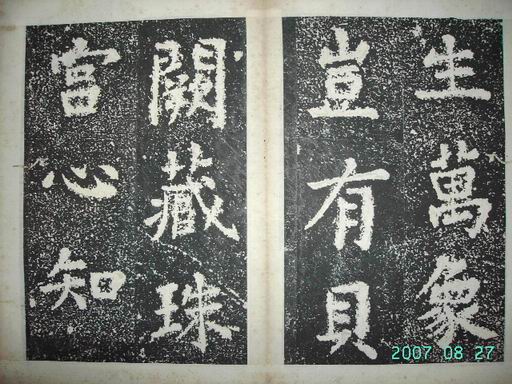 生萬象
豈有貝
闕藏珠
宮心知
2007 08 27